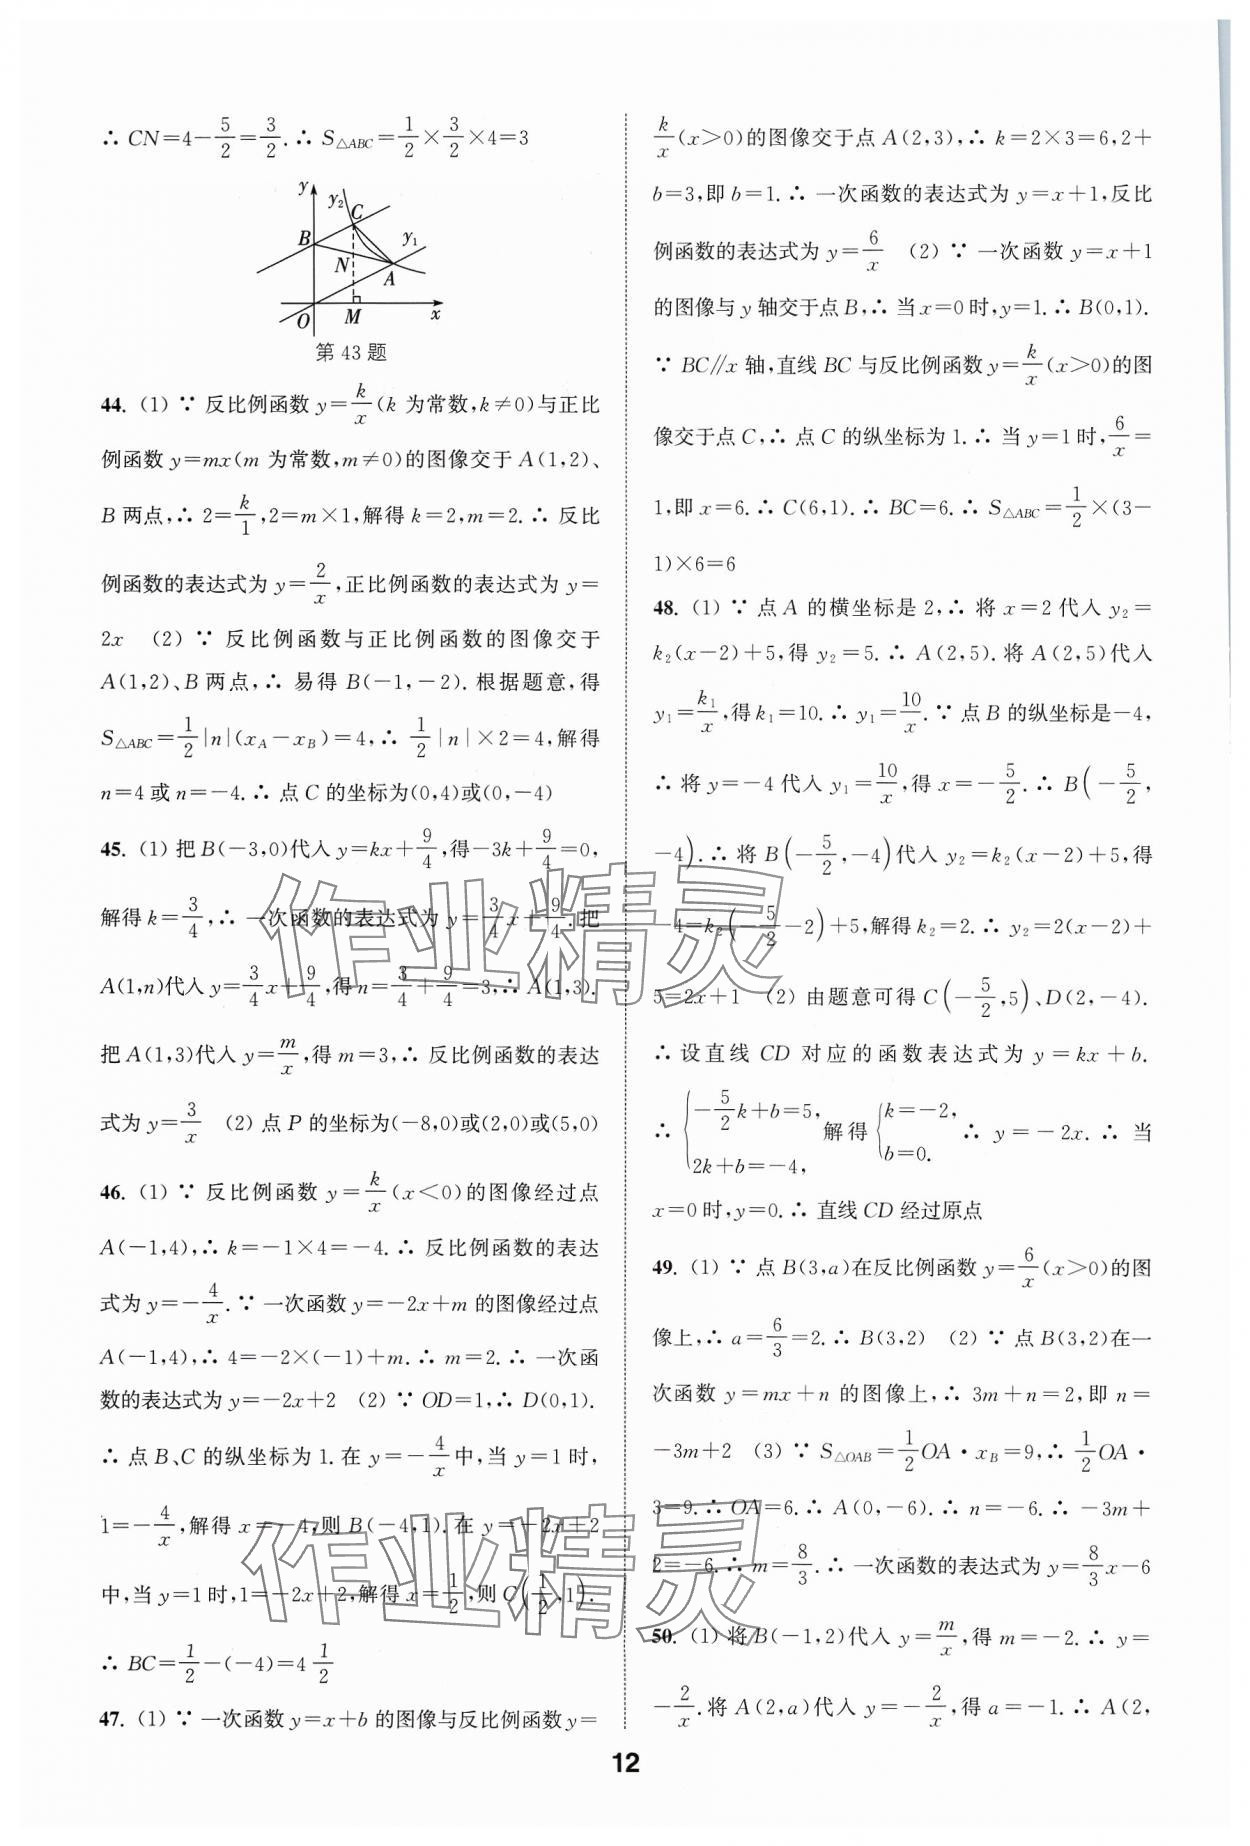 ∴ CN=4-5/2=3/2.∴ S△ABC=1/2×3/2×4=3
y
y₂
C
B
y₁
N
A
O
M
x
第 43 题
44. (1) ∵ 反比例函数 y=k/x(k 为常数,k≠0)与正比
例函数 y=mx(m 为常数,m≠0)的图像交于 A(1,2)、
B 两点,∴ 2=k/1,2=m×1,解得 k=2,m=2.∴ 反比
例函数的表达式为 y=2/x,正比例函数的表达式为 y=
2x (2) ∵ 反比例函数与正比例函数的图像交于
A(1,2)、B 两点,∴ 易得 B(-1,-2).根据题意,得
S△ABC=1/2|n|(xA-xB)=4,∴ 1/2|n|×2=4,解得
n=4 或 n=-4.∴ 点 C 的坐标为(0,4)或(0,-4)
45. (1) 把 B(-3,0)代入 y=kx+9/4,得-3k+9/4=0,
解得 k=3/4,∴ 一次函数的表达式为 y=3/4x+9/4.把
A(1,n)代入 y=3/4x+9/4,得 n=3/4+9/4=3,∴ A(1,3).
把 A(1,3)代入 y=m/x,得 m=3,∴ 反比例函数的表达
式为 y=3/x (2) 点 P 的坐标为(-8,0)或(2,0)或(5,0)
46. (1) ∵ 反比例函数 y=k/x(x<0)的图像经过点
A(-1,4),∴ k=-1×4=-4.∴ 反比例函数的表达
式为 y=-4/x.∵ 一次函数 y=-2x+m 的图像经过点
A(-1,4),∴ 4=-2×(-1)+m.∴ m=2.∴ 一次函
数的表达式为 y=-2x+2 (2) ∵ OD=1,∴ D(0,1).
∴ 点 B、C 的纵坐标为 1.在 y=-4/x中,当 y=1 时,
1=-4/x,解得 x=-4,则 B(-4,1).在 y=-2x+2
中,当 y=1 时,1=-2x+2,解得 x=1/2,则 C(1/2,1).
∴ BC=1/2-(-4)=4 1/2
47. (1) ∵ 一次函数 y=x+b 的图像与反比例函数 y=
k/x(x>0)的图像交于点 A(2,3),∴ k=2×3=6,2+
b=3,即 b=1.∴ 一次函数的表达式为 y=x+1,反比
例函数的表达式为 y=6/x (2) ∵ 一次函数 y=x+1
的图像与 y 轴交于点 B,∴ 当 x=0 时,y=1.∴ B(0,1).
∵ BC∥x 轴,直线 BC 与反比例函数 y=k/x(x>0)的图
像交于点 C,∴ 点 C 的纵坐标为 1.∴ 当 y=1 时,6/x=
1,即 x=6.∴ C(6,1).∴ BC=6.∴ S△ABC=1/2×(3-
1)×6=6
48. (1) ∵ 点 A 的横坐标是 2,∴ 将 x=2 代入 y₂=
k₂(x-2)+5,得 y₂=5.∴ A(2,5).将 A(2,5)代入
y₁=k₁/x,得 k₁=10.∴ y₁=10/x.∵ 点 B 的纵坐标是-4,
∴ 将 y=-4 代入 y₁=10/x,得 x=-5/2.∴ B(-5/2,
-4).∴ 将 B(-5/2,-4)代入 y₂=k₂(x-2)+5,得
-4=k₂(-5/2-2)+5,解得 k₂=2.∴ y₂=2(x-2)+
5=2x+1 (2) 由题意可得 C(-5/2,5)、D(2,-4).
∴ 设直线 CD 对应的函数表达式为 y=kx+b.
∴ {-5/2k+b=5, 2k+b=-4, 解得 {k=-2, b=0. ∴ y=-2x.∴ 当
x=0 时,y=0.∴ 直线 CD 经过原点
49. (1) ∵ 点 B(3,a)在反比例函数 y=6/x(x>0)的图
像上,∴ a=6/3=2.∴ B(3,2) (2) ∵ 点 B(3,2)在一
次函数 y=mx+n 的图像上,∴ 3m+n=2,即 n=
-3m+2 (3) ∵ S△OAB=1/2OA·xB=9,∴ 1/2OA·
3=9.∴ OA=6.∴ A(0,-6).∴ n=-6.∴ -3m+
2=-6.∴ m=8/3.∴ 一次函数的表达式为 y=8/3x-6
50. (1) 将 B(-1,2)代入 y=m/x,得 m=-2.∴ y=
-2/x.将 A(2,a)代入 y=-2/x,得 a=-1.∴ A(2,
12
作业精灵
作业精灵